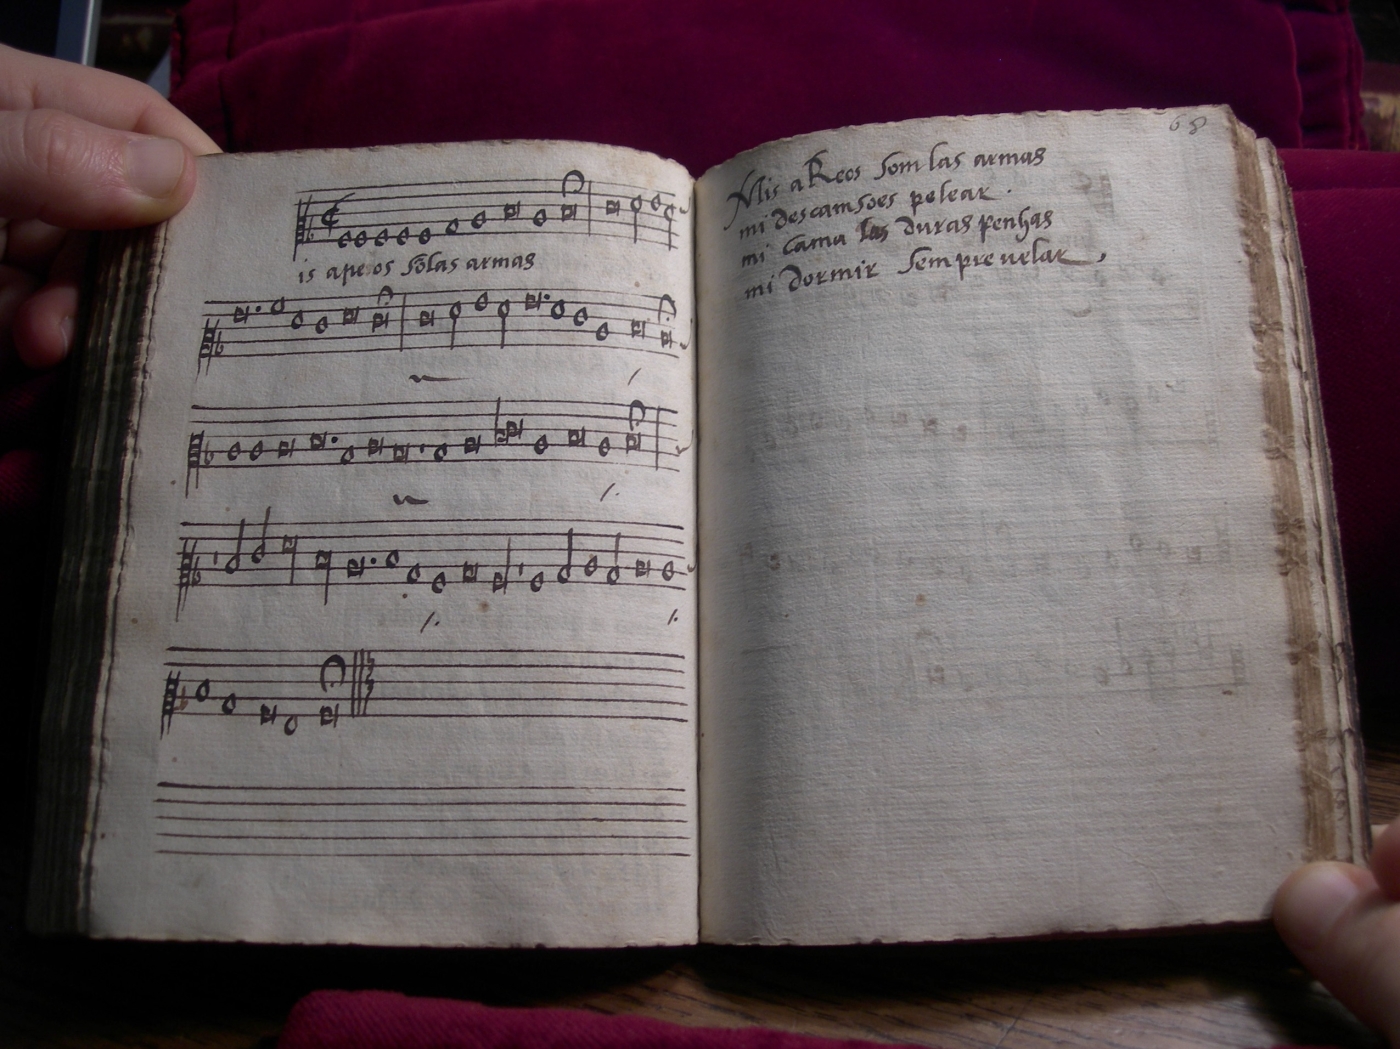 is apeos sõlas armas
68
Mis aReos somlas armas
mi descamsoes pelear.
mi cama las duras penhas
mi dormir sempre uelar,